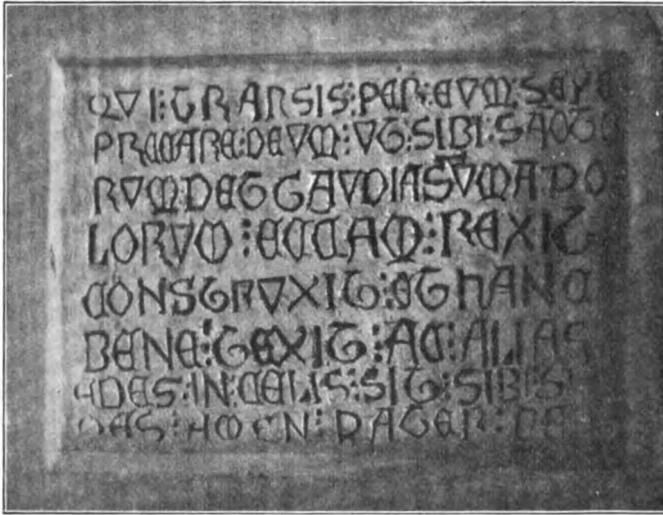 QVI:TRANSIS:PER:EVM:SEPE
PRECARE:DEVM:VT:SIBI:SACTO
RVM:DET GAVDIA SVMA DO
LORVM:ECCAM:REXIT
CONSTRVXIT:ET HANC
BENE:TEXIT:AC:ALIAS
EDES:IN:CELIS:SIT:SIBI:S
DES:AMEN:PATER: